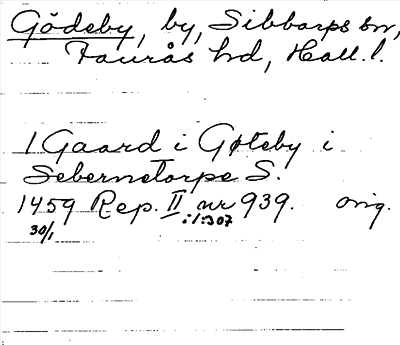 Gödeby, by, Sibbarps sn,
Faurås hd, Hall. l.
1 Gaard i Gøteby i
Sebernetorpe S.
1459 Rep. II nr 939. orig.
30/1 :1:307